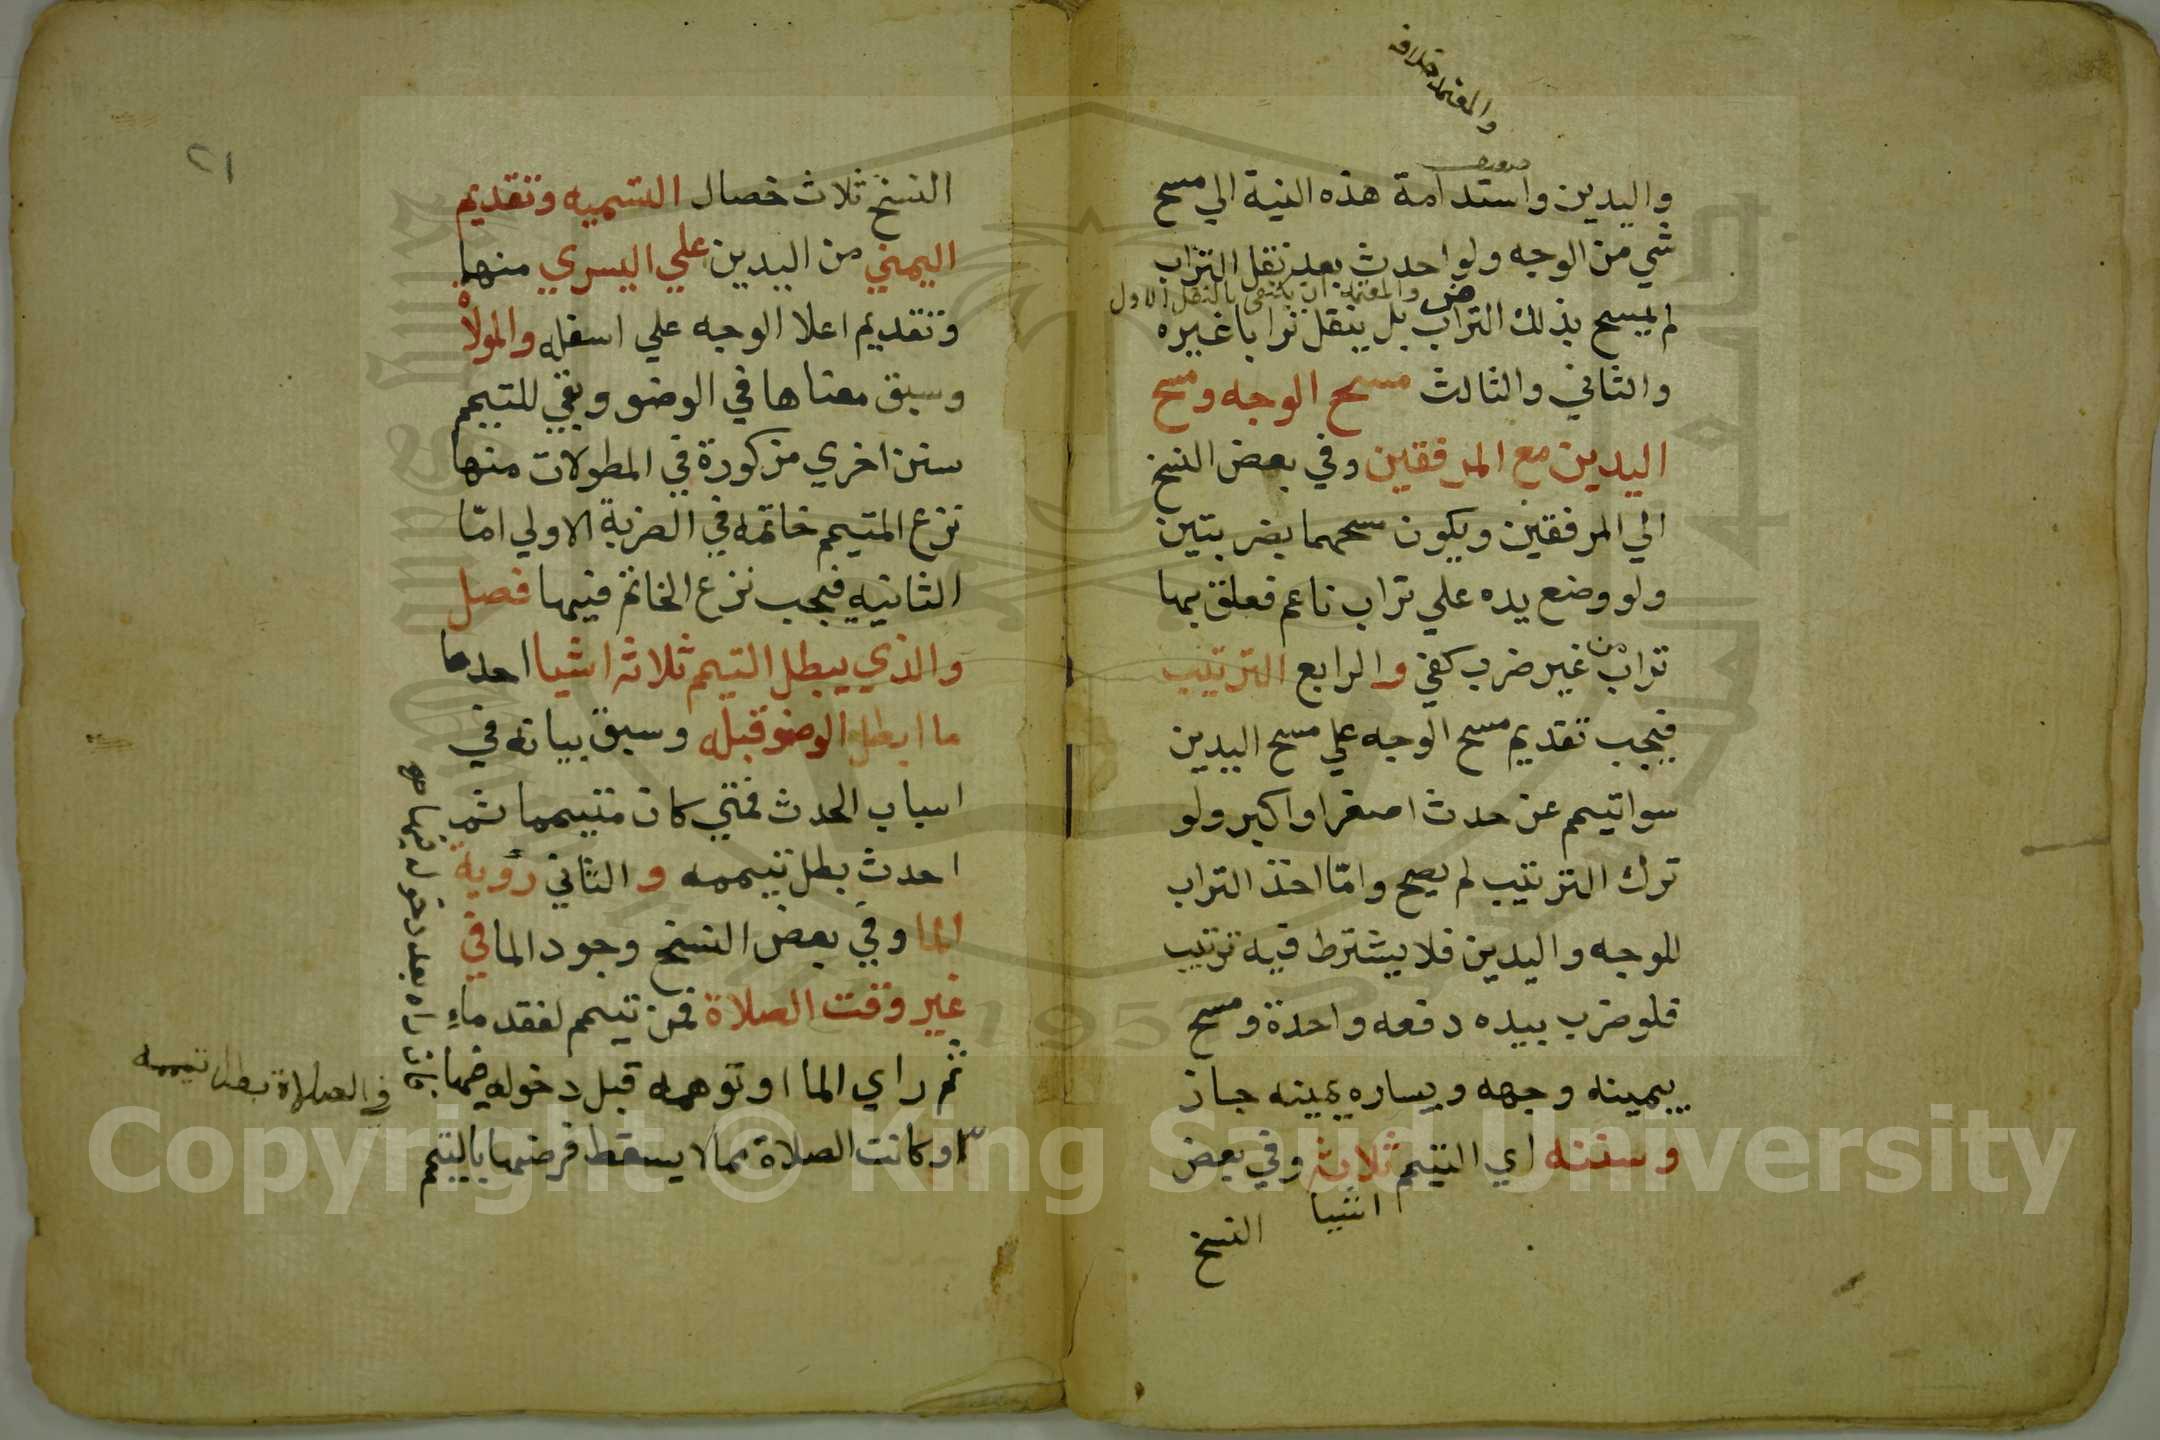 والمعتمد خلافه
واليدين واستدامة هذه النية الي مسح
شي من الوجه ولو احدث بعد نقل التراب
والمعتمد ان يكتفى بالنقل الاول
لم يمسح بذلك التراب بل ينقل ترابا غيره
والثاني والثالث مسح الوجه ومسح
اليدين مع المرفقين وفي بعض النسخ
الي المرفقين ويكون مسحهما بضربتين
ولو وضع يده علي تراب ناعم فعلق بها
تراب من غير ضرب كفي والرابع الترتيب
فيجب تقديم مسح الوجه علي مسح اليدين
سوا تيمم عن حدث اصغر او اكبر ولو
ترك الترتيب لم يصح وامّا اخذ التراب
للوجه واليدين فلا يشترط فيه ترتيب
فلو ضرب بيده دفعه واحدة ومسح
بيمينه وجهه وبيساره يمينه جاز
وسننه اي التيمم ثلاثة وفي بعض
اشيا
النسخ
٢١
النسخ ثلاث خصال التسميه وتقديم
اليمني من اليدين علي اليسري منهما
وتقديم اعلا الوجه علي اسفله والمولاة
وسبق معناها في الوضو وبقي للتيمم
سنن اخري مذكورة في المطولات منها
نزع المتيمم خاتمه في الضربة الاولي امّا
الثانيه فيجب نزع الخاتم فيها فصل
والذي يبطل التيمم ثلاثة اشيا احدها
ما ابطل الوضو قبله وسبق بيانه في
اسباب الحدث فمتي كان متيمما ثم
احدث بطل تيممه والثاني رؤية
الما وفي بعض النسخ وجود الما في
غير وقت الصلاة فمن تيمم لفقد ماءٍ
ثم راي الما او توهمه قبل دخوله فيها
فان راه بعد دخوله فيها
في الصلاة بطل تيممه
وكانت الصلاة مما لا يسقط فرضها بالتيمم
Copyright © King Saud University
1957